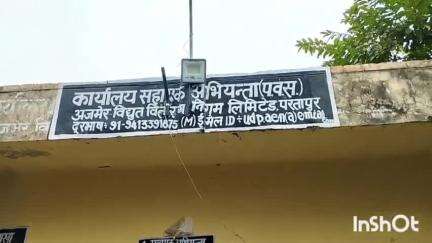 कार्यालय सहायक अभियन्ता (पवस.)
अजमेर विद्युत वितरण निगम लिमिटेड, परतापुर
दूरभाष: 91-9413391875 (M) ईमेल ID÷
InShOt